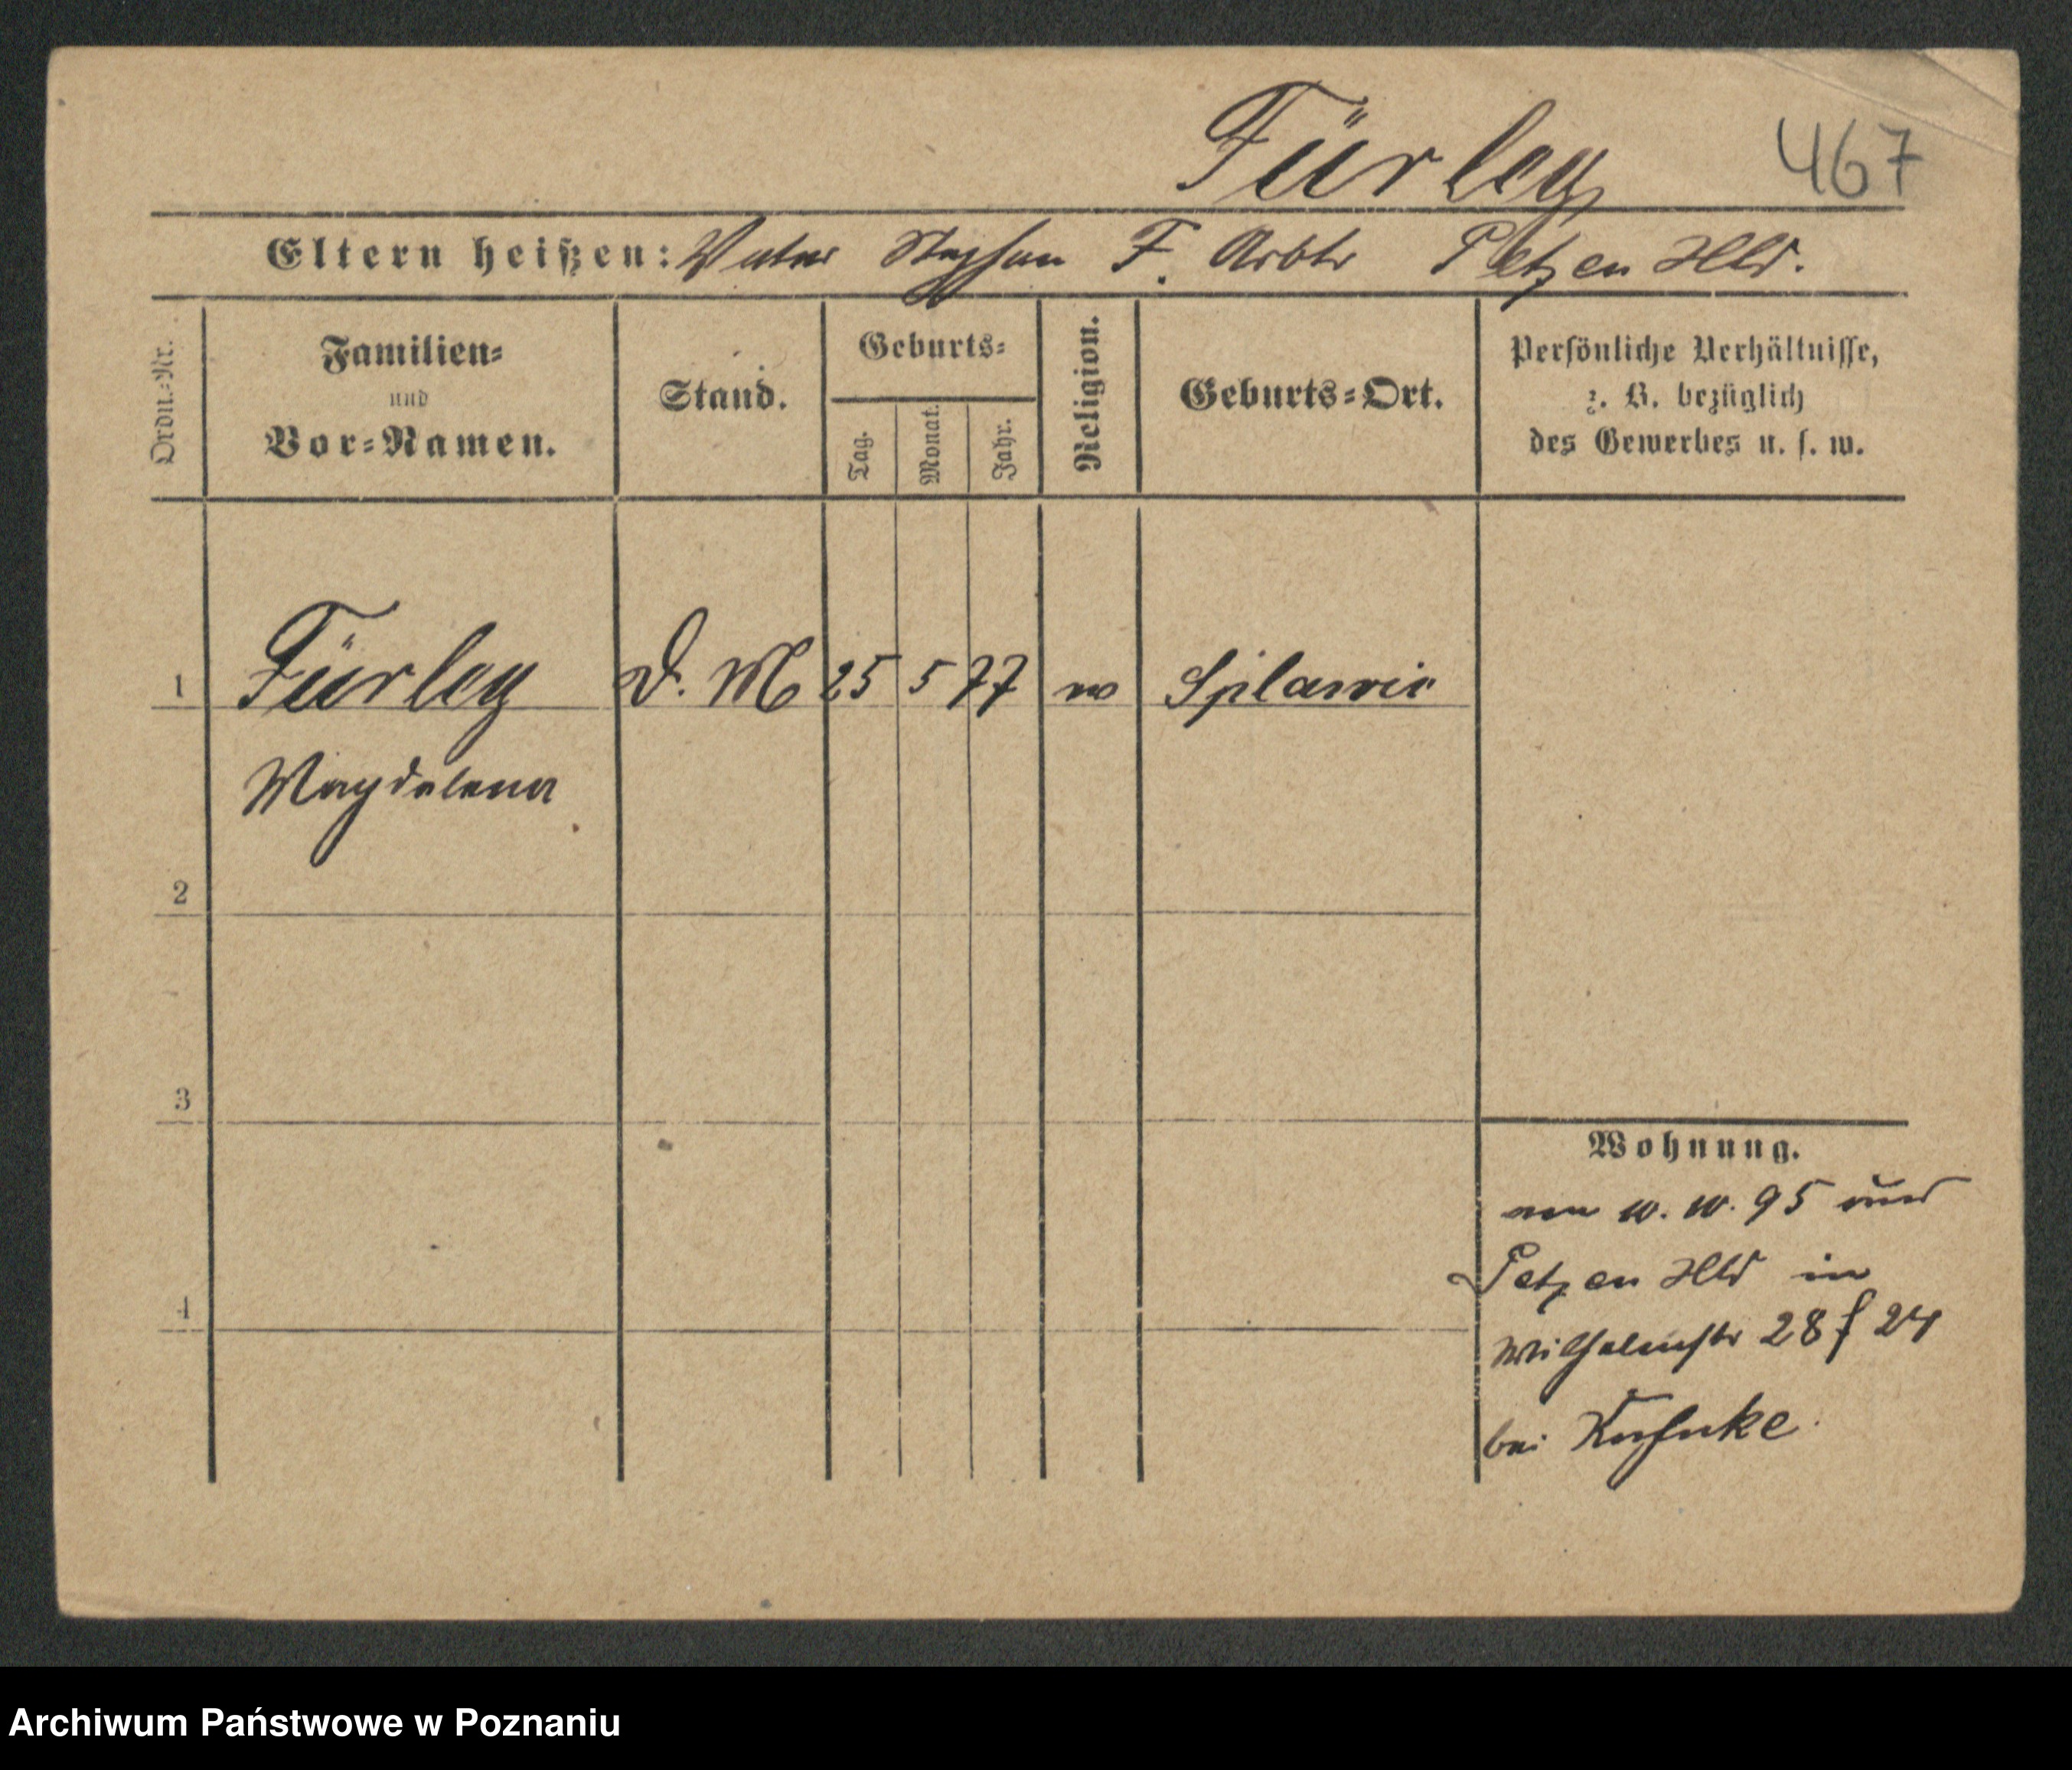 Fürley 467
Eltern heißen: Vater Stephan F. Arbtr Petzen Hld.
Ordn.-Nr.
Familien-
und
Vor-Namen.
Stand.
Geburts-
Tag.
Monat.
Jahr.
Religion.
Geburts-Ort.
Persönliche Verhältnisse,
z. B. bezüglich
des Gewerbes u. s. w.
1 Fürley D. M 25 5 77 Splawie
Magdalena
2
3
4
Wohnung.
95 aus
Petzen Hld in
Wilhelmstr 28 f 24
bei Kuhnke.
Archiwum Państwowe w Poznaniu